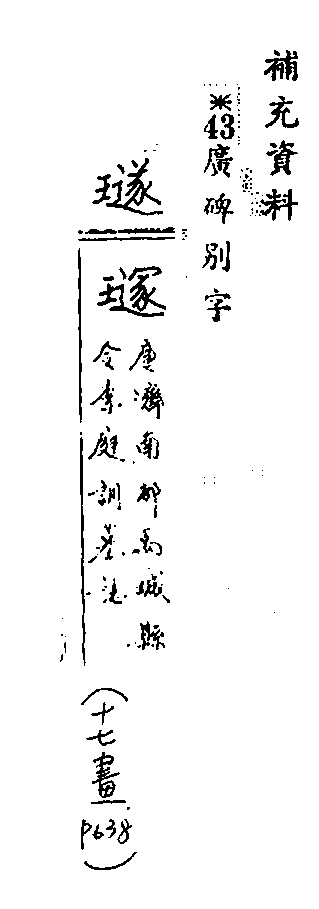 補充資料
※43廣碑別字
璲
唐濟南郡禹城縣
令李庭訓墓誌
(十七畫P638)